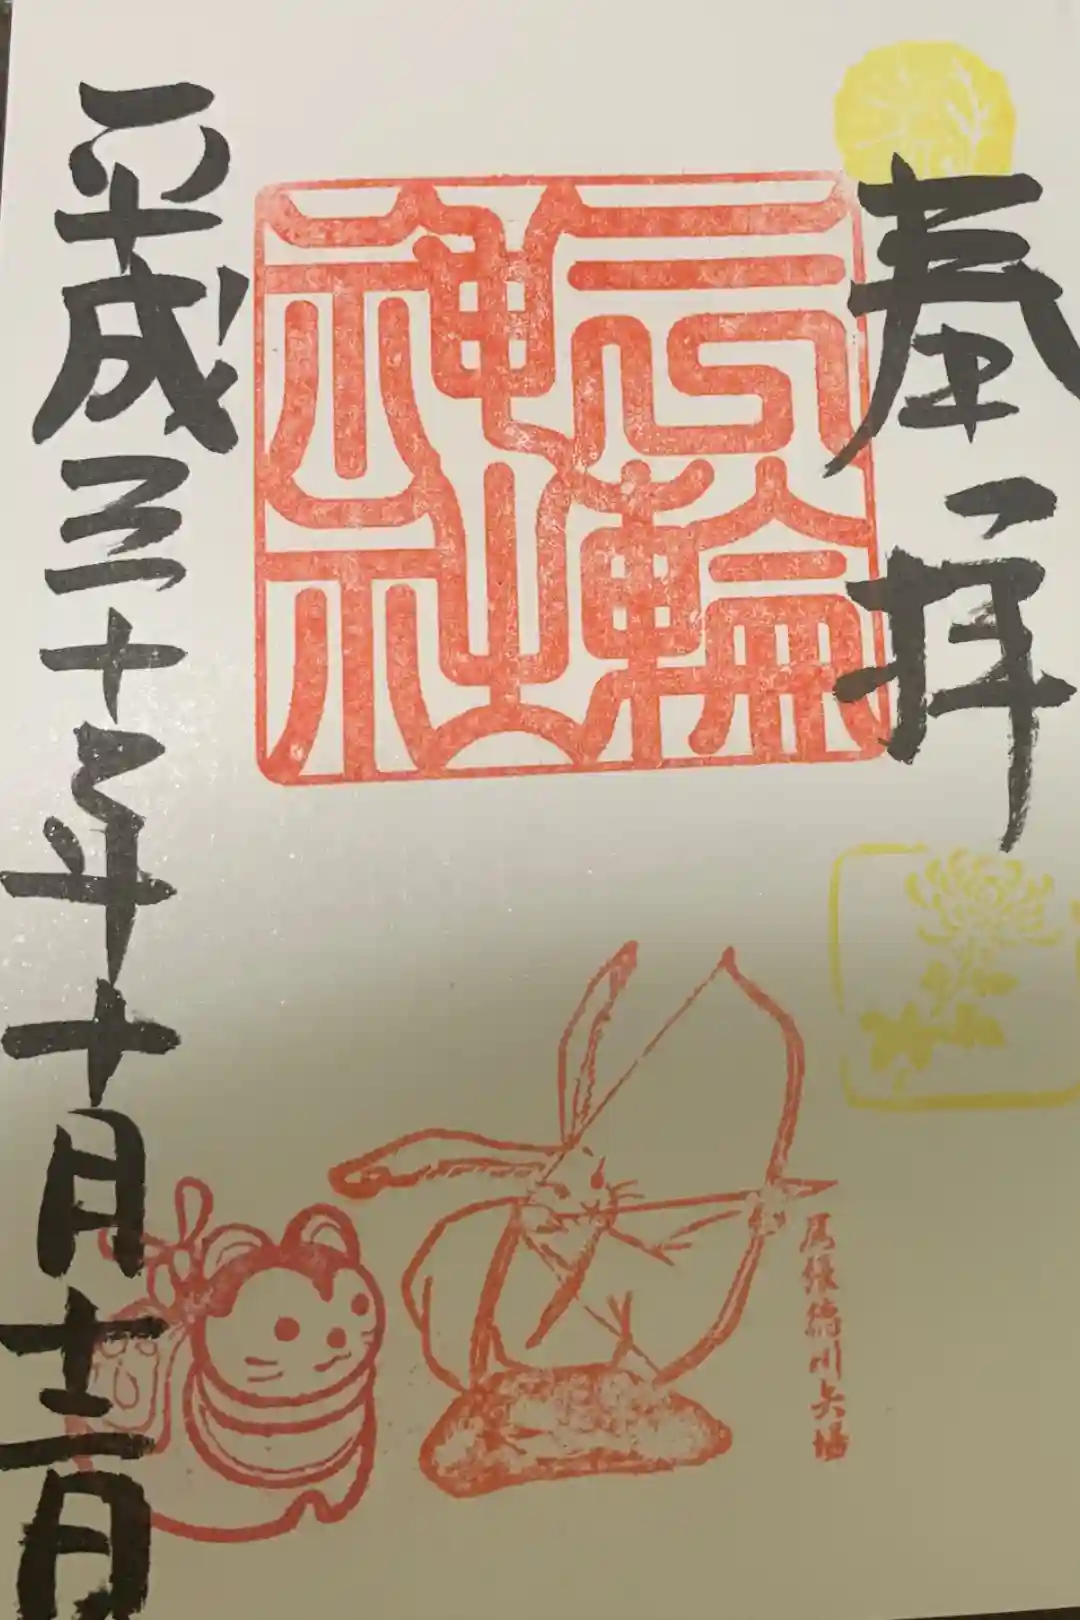 奉拝
三輪神社
尾張徳川矢場
平成三十年十月十二日